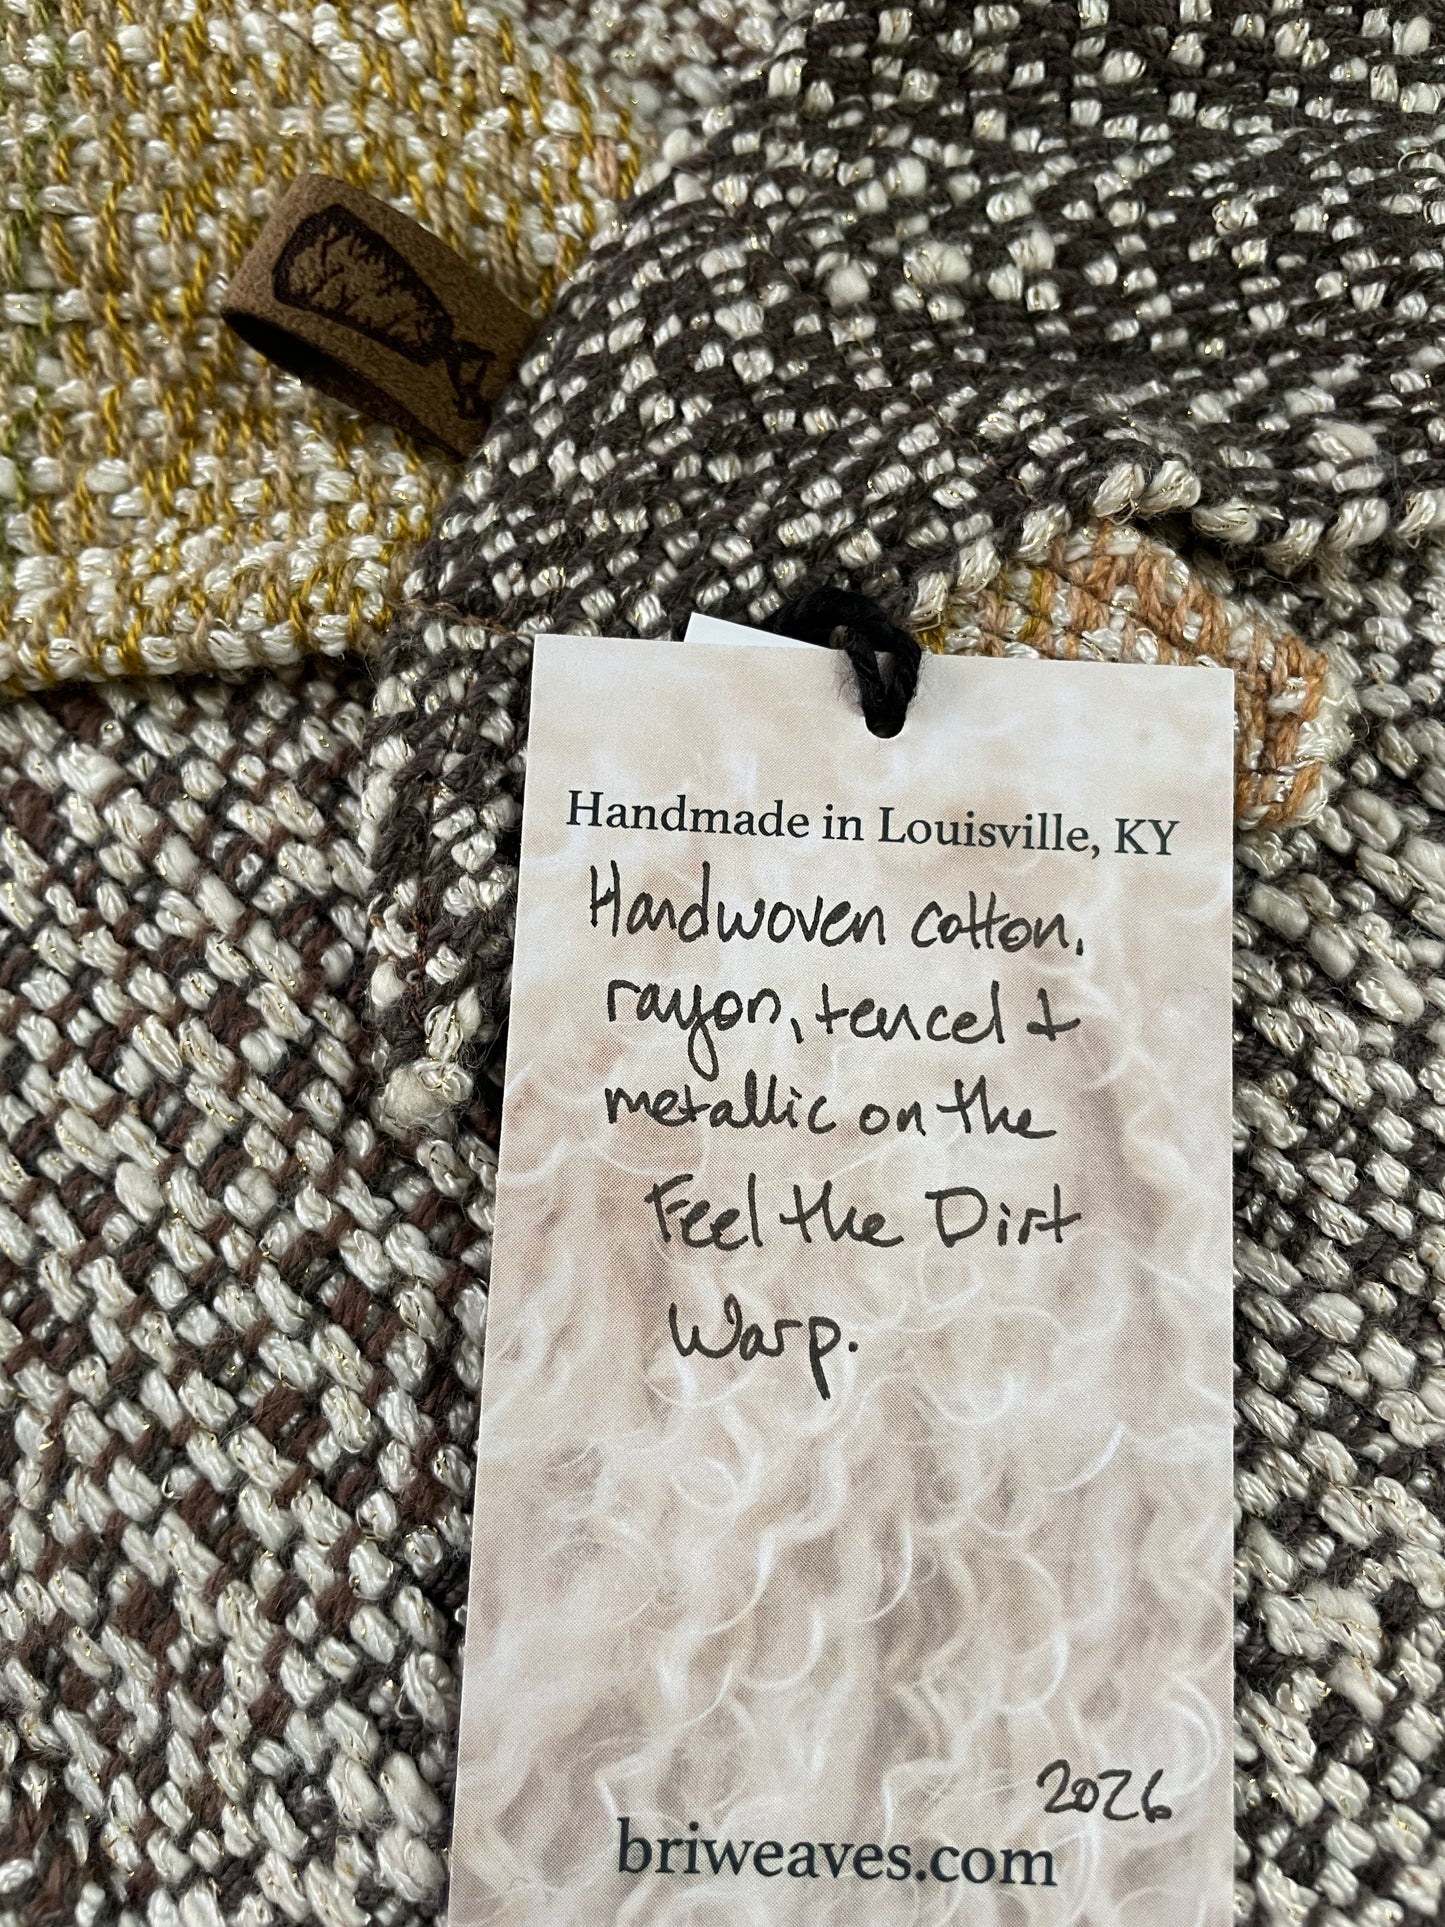 Handmade in Louisville, KY
Handwoven cotton,
rayon, tencel +
metallic on the
Feel the Dirt
Warp.
2026
briweaves.com